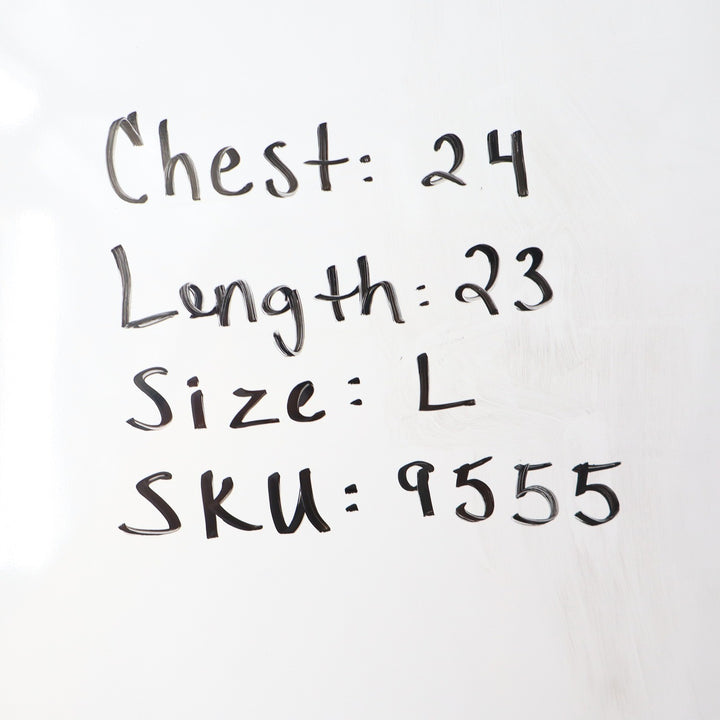 Chest: 24
Length: 23
Size: L
SKU: 9555